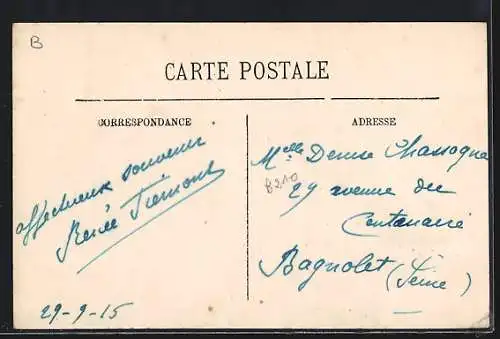 B
CARTE POSTALE
CORRESPONDANCE
affectueux souvenir
Renée Trémont
29-9-15
ADRESSE
Melle Denise Chassagne
8210
29 avenue du
Centenaire
Bagnolet (Seine)